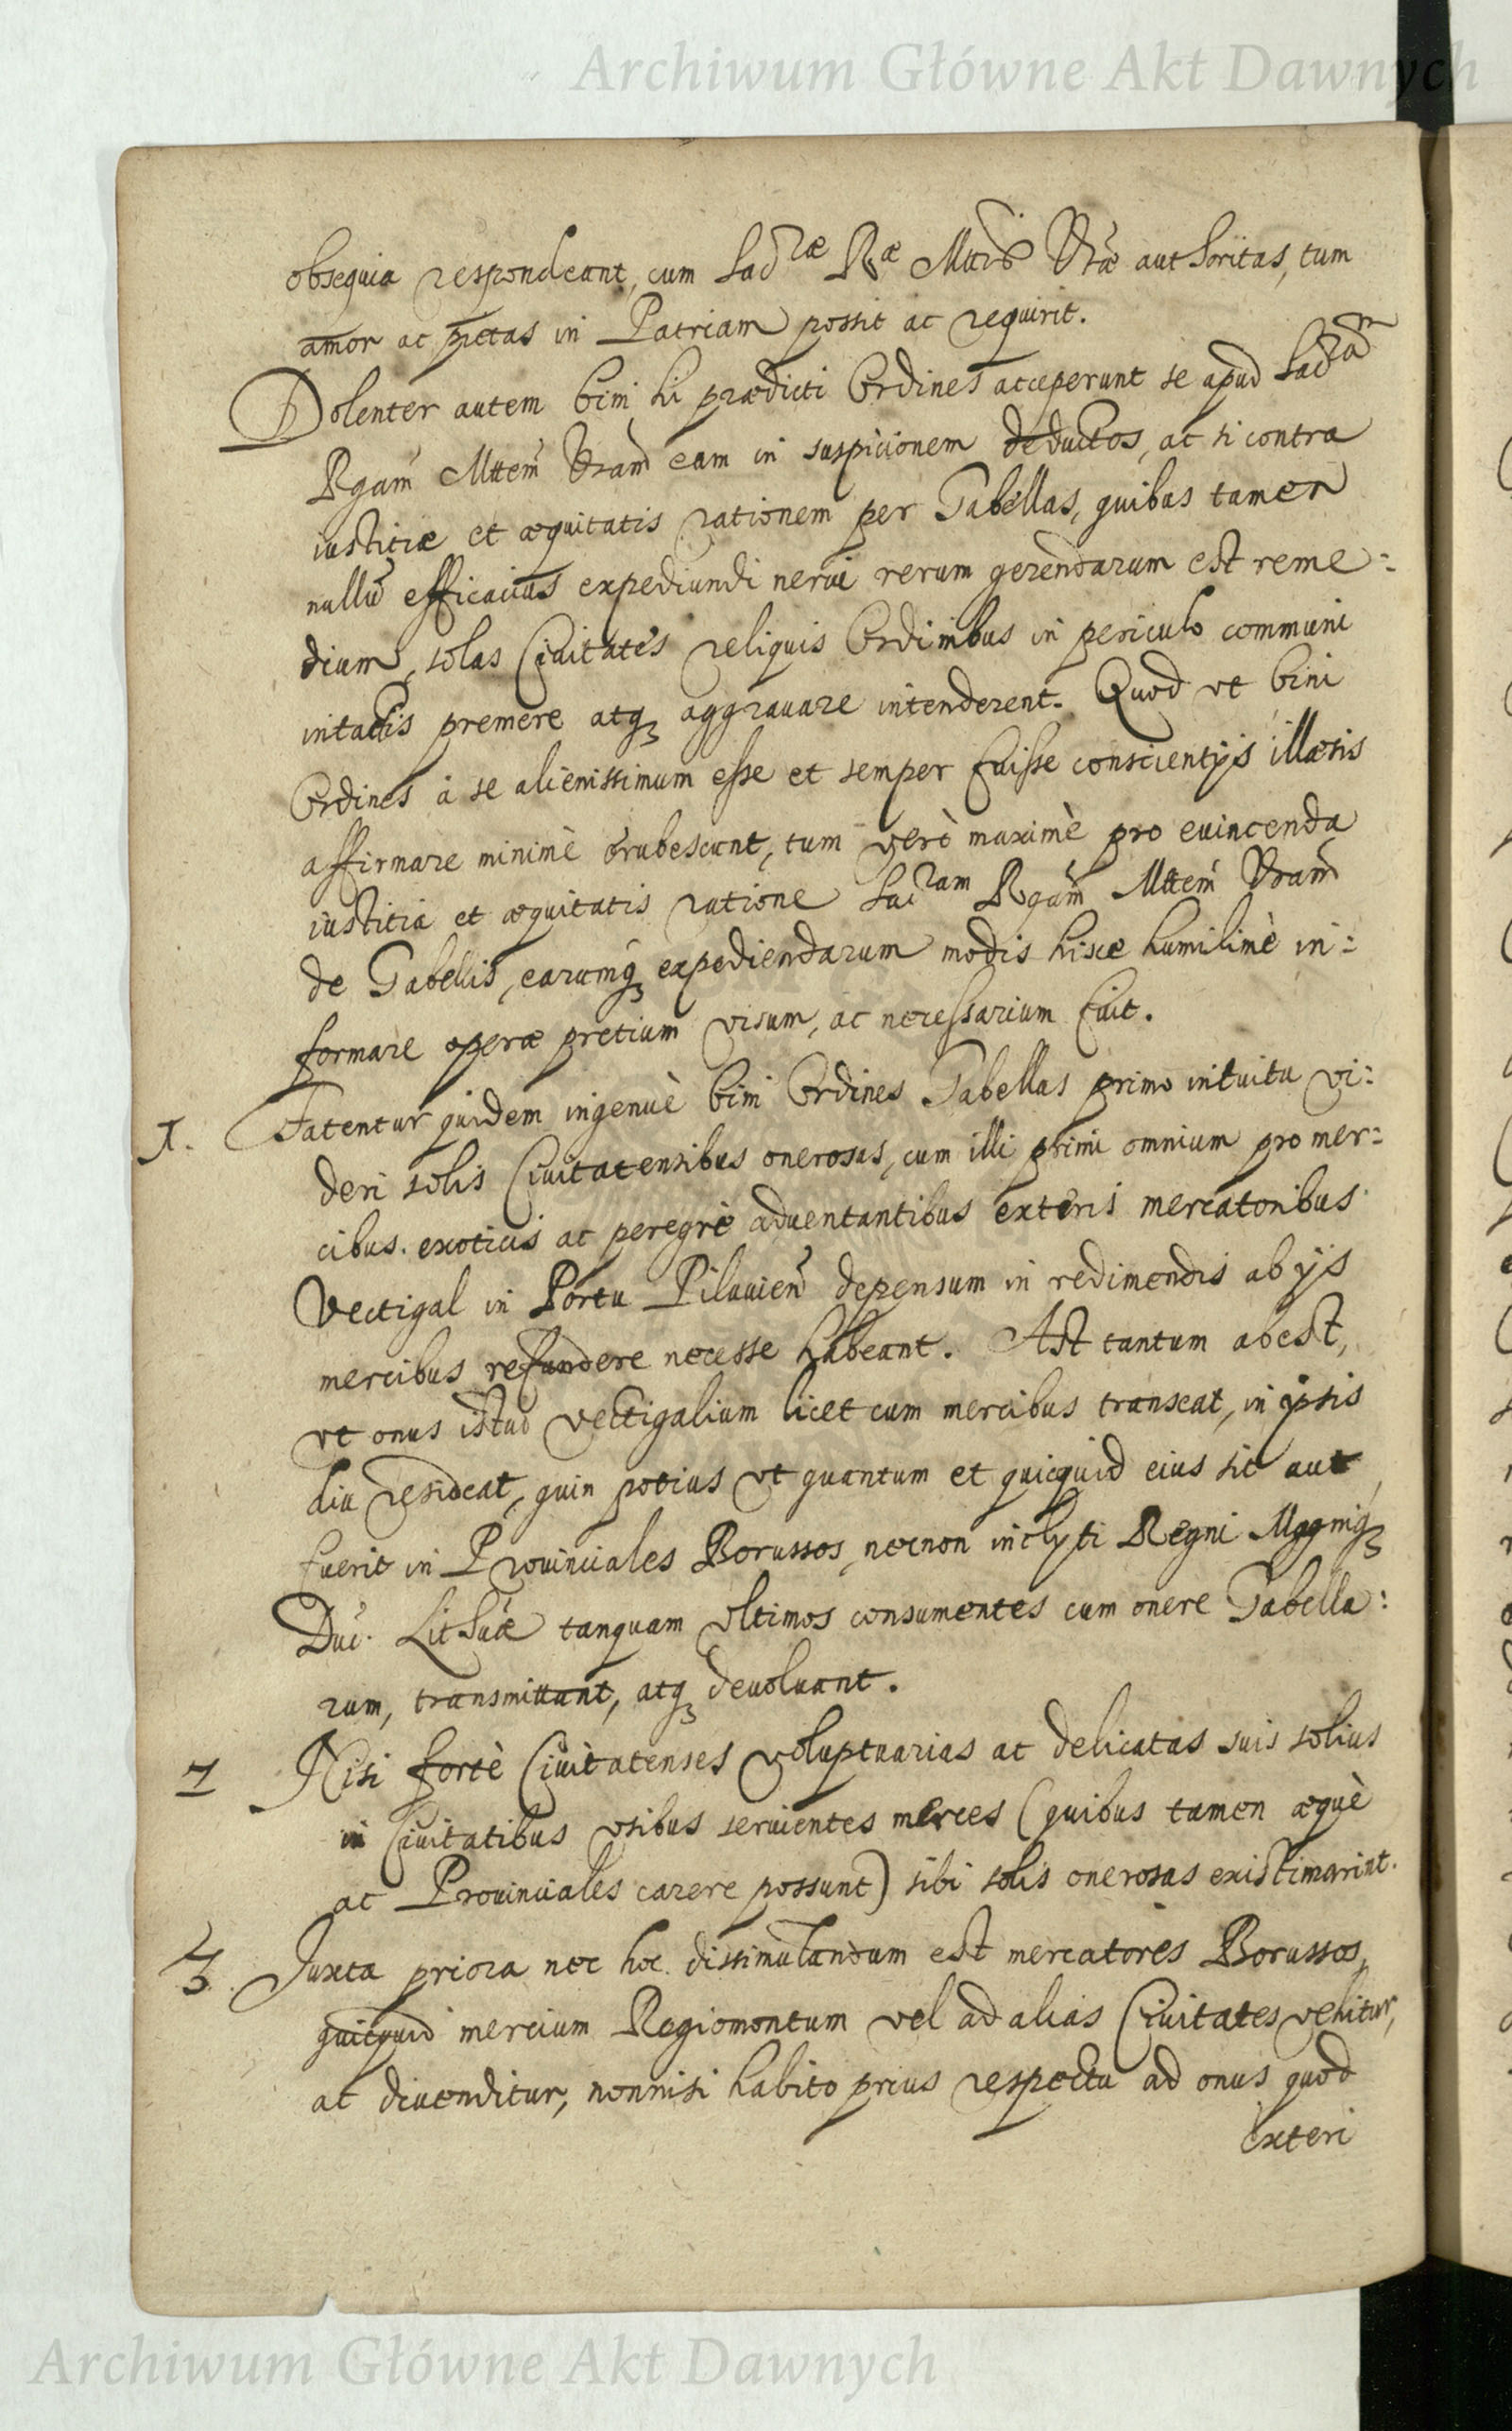 Archiwum Główne Akt Dawnych
obsequia respondeant, cum Sacrae Rae Mttis Vrae authoritas, tum
amor ac pietas in Patriam possit ac requirit.
Dolenter autem bini hi praedicti Ordines acceperunt se apud Sacram
Rgam Mttem Vram eam in suspicionem deductos, ac si contra
iustitiae et aequitatis rationem per Gabellas, quibus tamen
nullu efficacius expediundi nerui rerum gerendarum est reme:
dium, solas Ciuitates reliquis Ordinibus in periculo communi
intactis premere atq aggrauare intenderent. Quod vt bini
Ordines à se alienissimum esse et semper fuisse conscientijs illaesis
affirmare minimè erubescunt, tum verò maximè pro euincenda
iustitia et aequitatis ratione Sacram Rgam Mttem Vram
de Gabellis, earumq expediendarum modis hisce humilimè in:
formare operae pretium visum, ac necessarium fuit.
1. Fatentur quidem ingenuè bini Ordines Gabellas primo intuitu vi:
deri solis Ciuitatensibus onerosas, cum illi primi omnium pro mer:
cibus exoticis ac peregrè aduentantibus exteris mercatoribus
Vectigal in Portu Pilauien depensum in redimendis ab ijs
mercibus refundere necesse habeant. Ast tantum abest,
vt onus istud vectigalium licet cum mercibus transeat, in ipsis
diu resideat, quin potius vt quantum et quicquid eius sit aut
fuerit in Prouinciales Borussos, necnon inclyti Regni Magniq
Duc. Lithuae tanquam vltimos consumentes cum onere Gabella:
rum, transmittant, atq deuoluant.
2 Nisi fortè Ciuitatenses voluptuarias ac delicatas suis solius
in Ciuitatibus vsibus seruientes merces (quibus tamen aequè
ac Prouinciales carere possunt) sibi solis onerosas existimarint.
3. Juxta priora nec hoc dissimulandum est mercatores Borussos,
quicquid mercium Regiomontum vel ad alias Ciuitates vehitur,
ac diuenditur, nonnisi habito prius respectu ad onus quod
exteri
Archiwum Główne Akt Dawnych